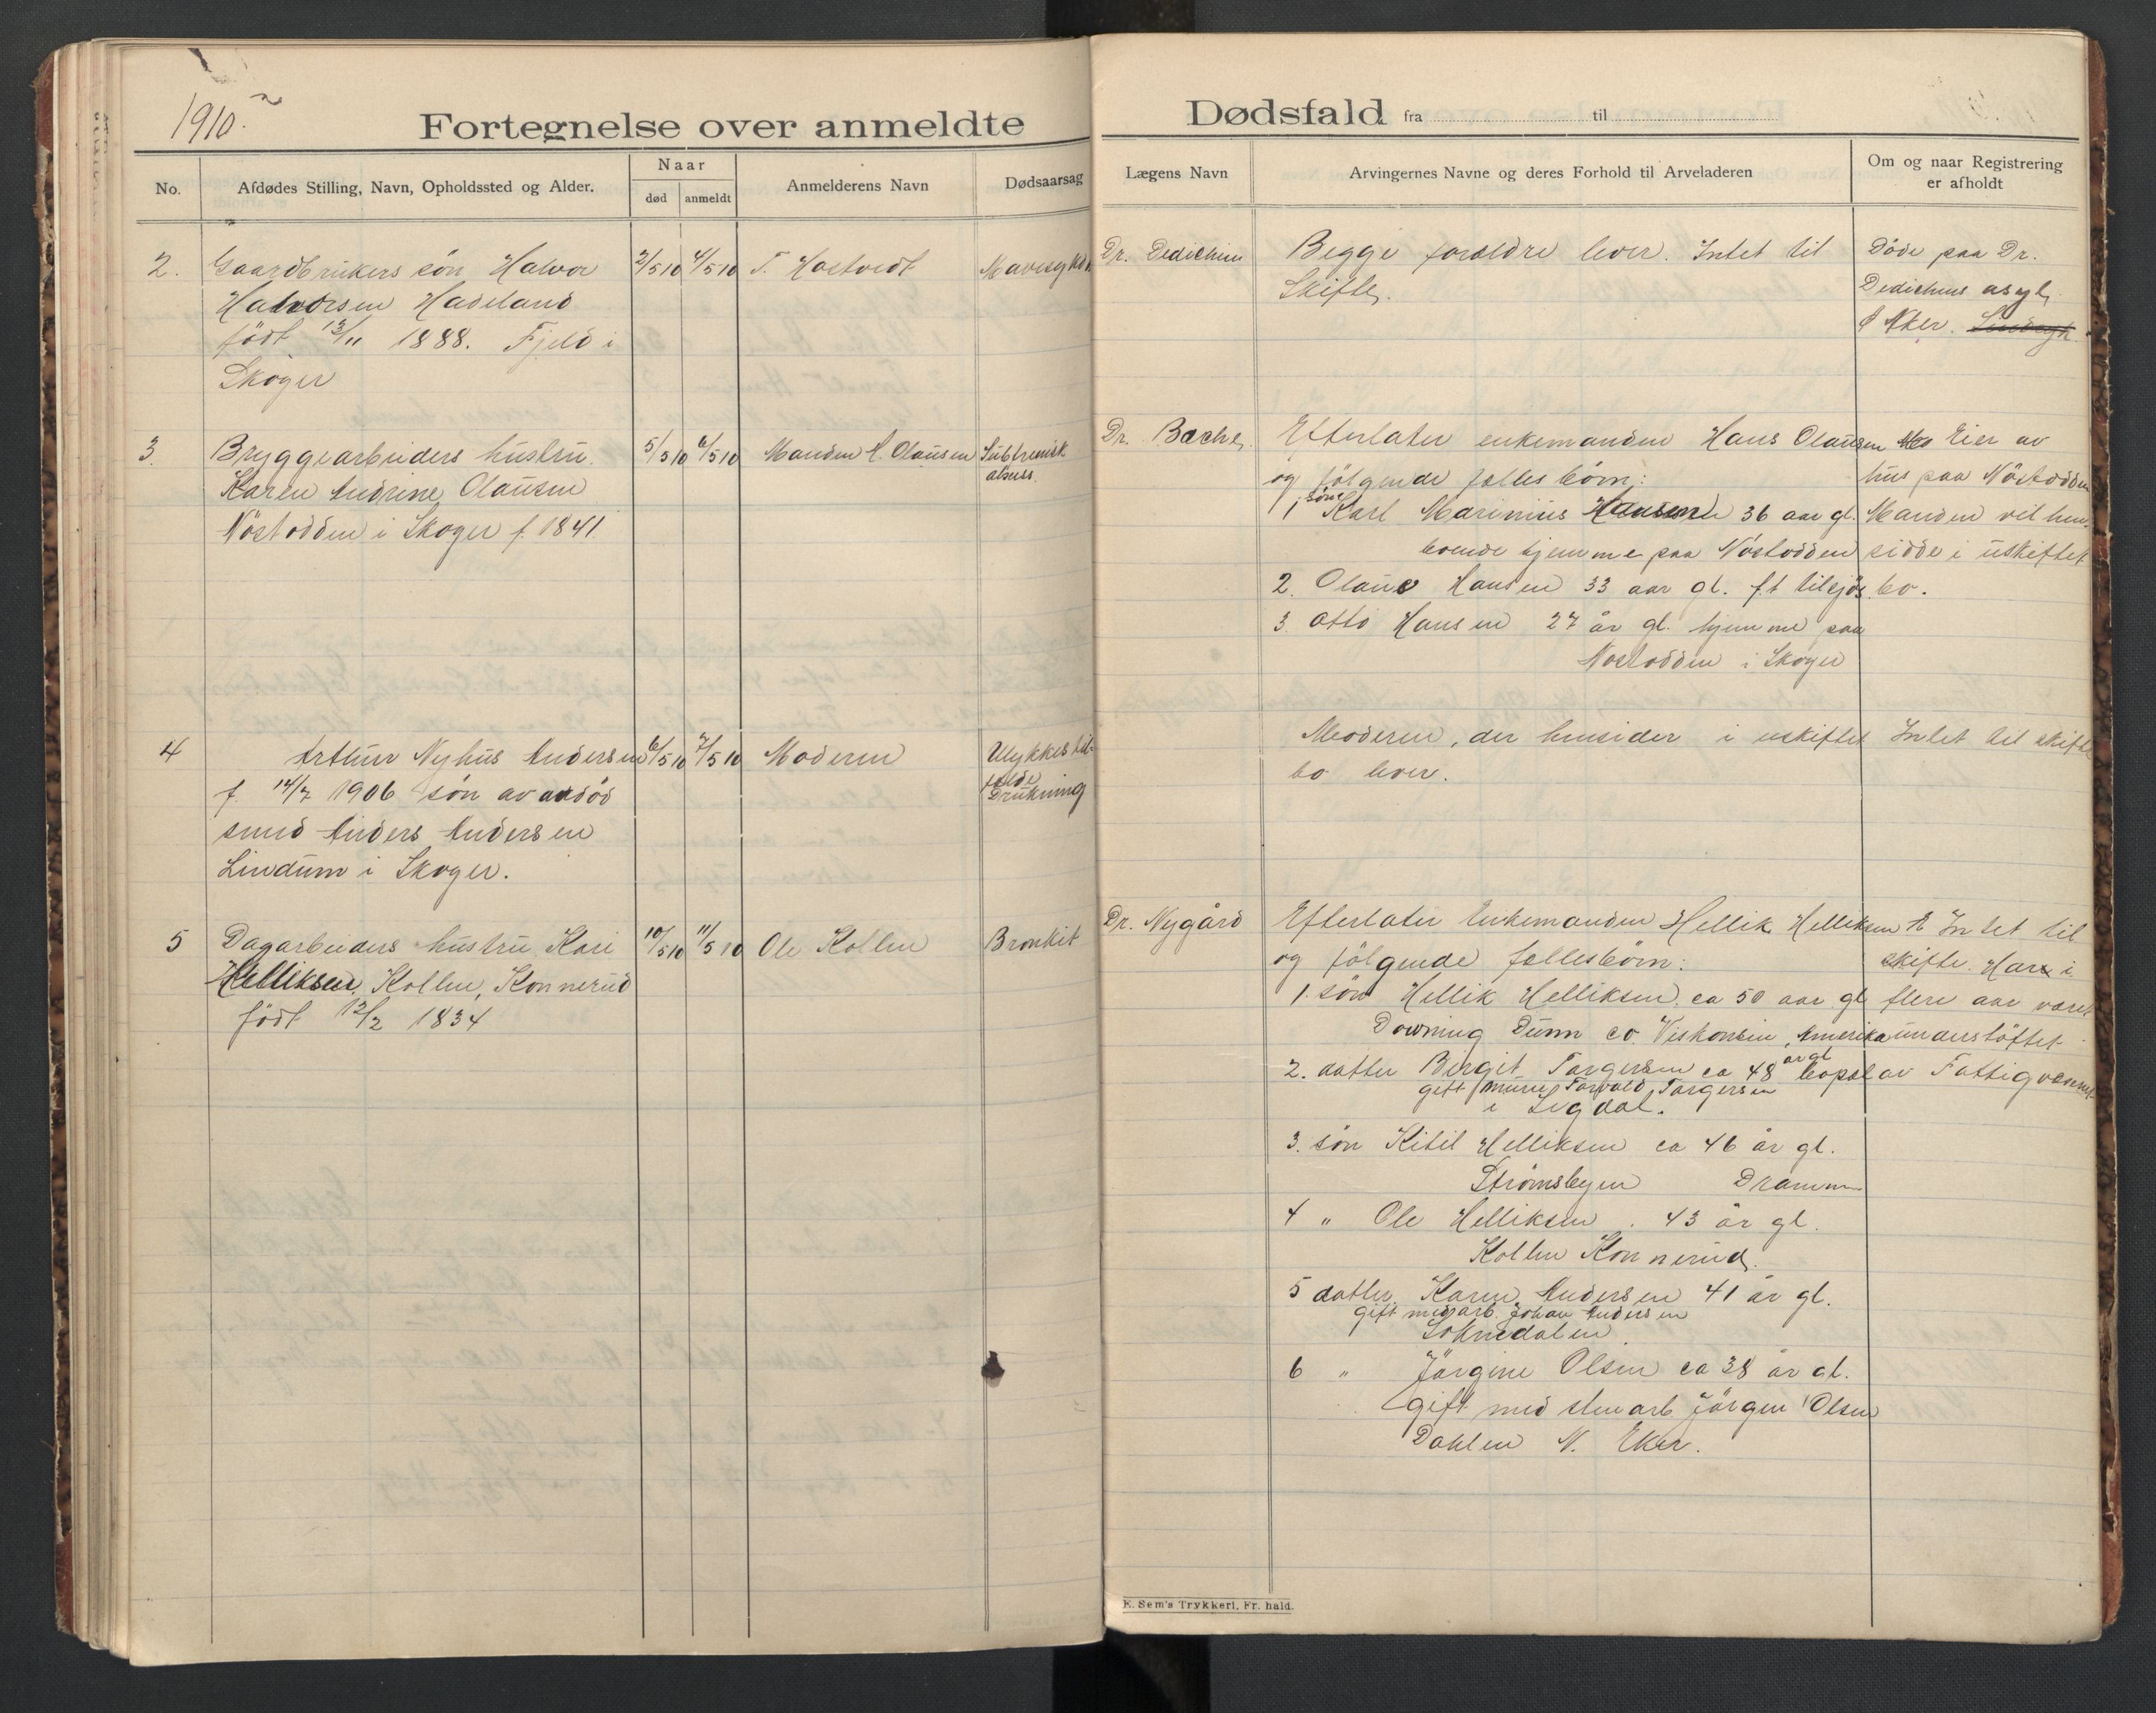 1910.
Fortegnelse over anmeldte
No.
Afdødes Stilling, Navn, Opholdssted og Alder.
Naar
død
anmeldt
Anmelderens Navn
Dødsaarsag
2.
Gaardbrukers søn Halvor
Halvorsen Hadeland
født 13/11 1888. Fjeld i
Skoger
2/5 10
4/5 10
T. Hostvedt
3.
Bryggearbeiders hustru
Karen Andrine Olausen
Nøstodden i Skoger f. 1841
5/5 10
6/5 10
Manden H. Olausen
4
Arthur Nyhus Andersen
f. 14/7 1906 søn av avdød
smed Anders Andersen
Lindum i Skoger.
6/5 10
7/5 10
Moderen
Ulykkestil-
fælde
Drukning
5
Dagarbeiders hustru Kari
Helliksen, Kollen, Konnerud
født 12/2 1834
10/5 10
11/5 10
Ole Kollen
Bronkit
Dødsfald fra til
Lægens Navn
Arvingernes Navne og deres Forhold til Arveladeren
Om og naar Registrering
er afholdt
Dr. Dedichen
Begge forældre lever. Intet til
Skifte.
Døde paa Dr.
Dedichens asyl
i Aker.
Dr. Bache
Efterlater enkemanden Hans Olausen
og følgende fælles børn:
1 søn Karl Marinius Hansen 36 aar gl.
boende hjemme paa Nøstodden
2. Olaus Hansen 33 aar gl. f.t tilsjøs
3. Otto Hansen 27 år gl. hjemme paa
Nøstodden i Skoger
Eier av
hus paa Nøstodden
Manden vil hen-
sidde i uskiftet
bo.
Moderen, der hensider i uskiftet
bo lever.
Intet til skifte
Dr. Nygård
Efterlater Enkemanden Hellik Helliksen
og følgende fællesbørn:
1. søn Hellik Helliksen, ca 50 aar gl
Downing Dunn co. Viskonsin, Amerika
2. datter Bergit Torgersen ca 48 år gl bopæl
gift murer Torvald Torgersen
i Sigdal.
3. søn Kitil Helliksen ca 46 år gl.
Strømsbyen Drammen
4 " Ole Helliksen. 43 år gl.
Kollen Konnerud.
5 datter Karen Andersen 41 år gl.
gift med arb. Johan Andersen
Soknedalen
6 " Jørgine Olsen ca 38 år gl.
gift med stenarb Jørgen Olsen
Dahlen N. Eker.
Intet til
skifte. Har i
flere aar været
understøttet
av Fattigvæsenet
E. Sem's Trykkeri, Fr. hald.